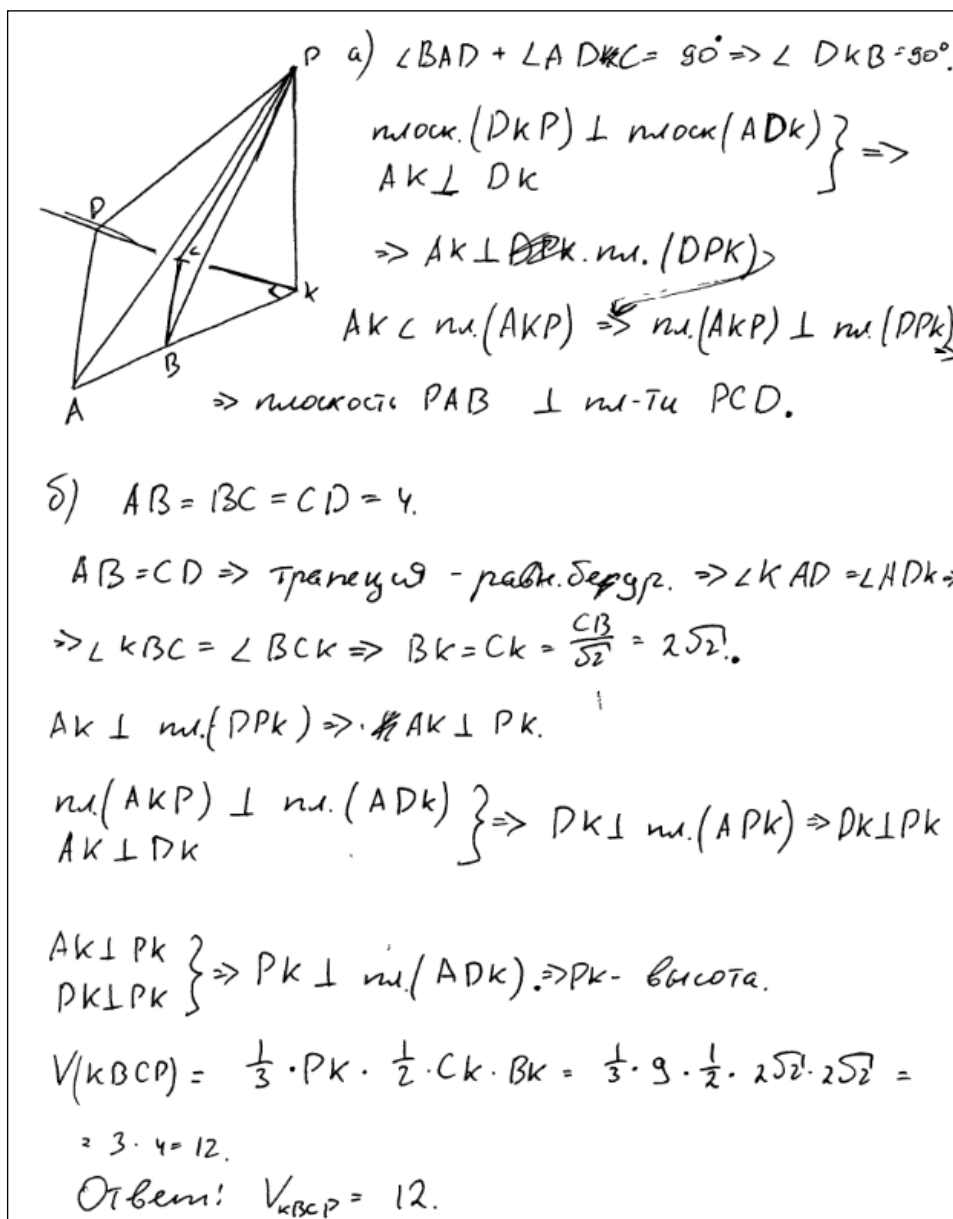 P
D
C
K
B
A
а) ∠BAD + ∠ADC = 90° ⇒ ∠ DKB = 90°.
плоск.(DKP) ⊥ плоск(ADK) } ⇒
AK ⊥ DK
⇒ AK ⊥ пл. (DPK)
AK ⊂ пл.(AKP) ⇒ пл.(AKP) ⊥ пл.(DPK) ⇒
⇒ плоскость PAB ⊥ пл-ти PCD.
б) AB = BC = CD = 4.
AB = CD ⇒ трапеция - равн.бедр. ⇒ ∠KAD = ∠ADK ⇒
⇒ ∠KBC = ∠BCK ⇒ BK = CK = CB/√2 = 2√2.
AK ⊥ пл.(DPK) ⇒ AK ⊥ PK.
пл.(AKP) ⊥ пл.(ADK) } ⇒ DK ⊥ пл.(APK) ⇒ DK ⊥ PK
AK ⊥ DK
AK ⊥ PK } ⇒ PK ⊥ пл.(ADK). ⇒ PK - высота.
DK ⊥ PK
V(KBCP) = 1/3 · PK · 1/2 · CK · BK = 1/3 · 9 · 1/2 · 2√2 · 2√2 =
= 3 · 4 = 12.
Ответ: V_KBCP = 12.